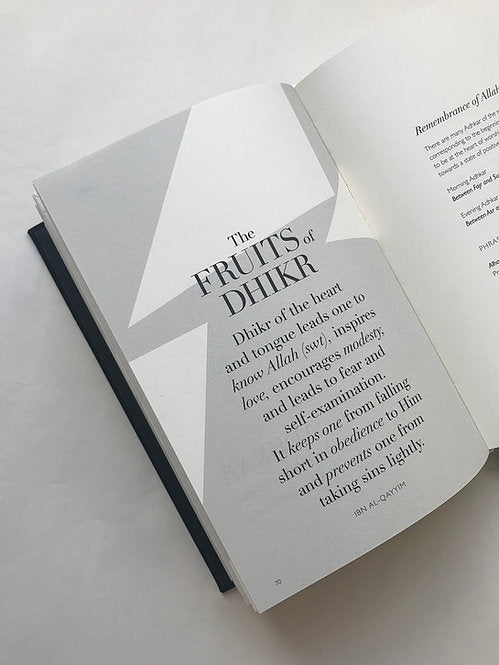 The
FRUITS of
DHIKR
Dhikr of the heart
and tongue leads one to
know Allah (swt), inspires
love, encourages modesty,
and leads to fear and
self-examination.
It keeps one from falling
short in obedience to Him
and prevents one from
taking sins lightly.
IBN AL-QAYYIM
70
Remembrance of Allah
There are many Adhkar of the
corresponding to the beginning
to be at the heart of
towards a state of
Morning Adhkar
Between Fajr and
Evening Adhkar
Between Asr